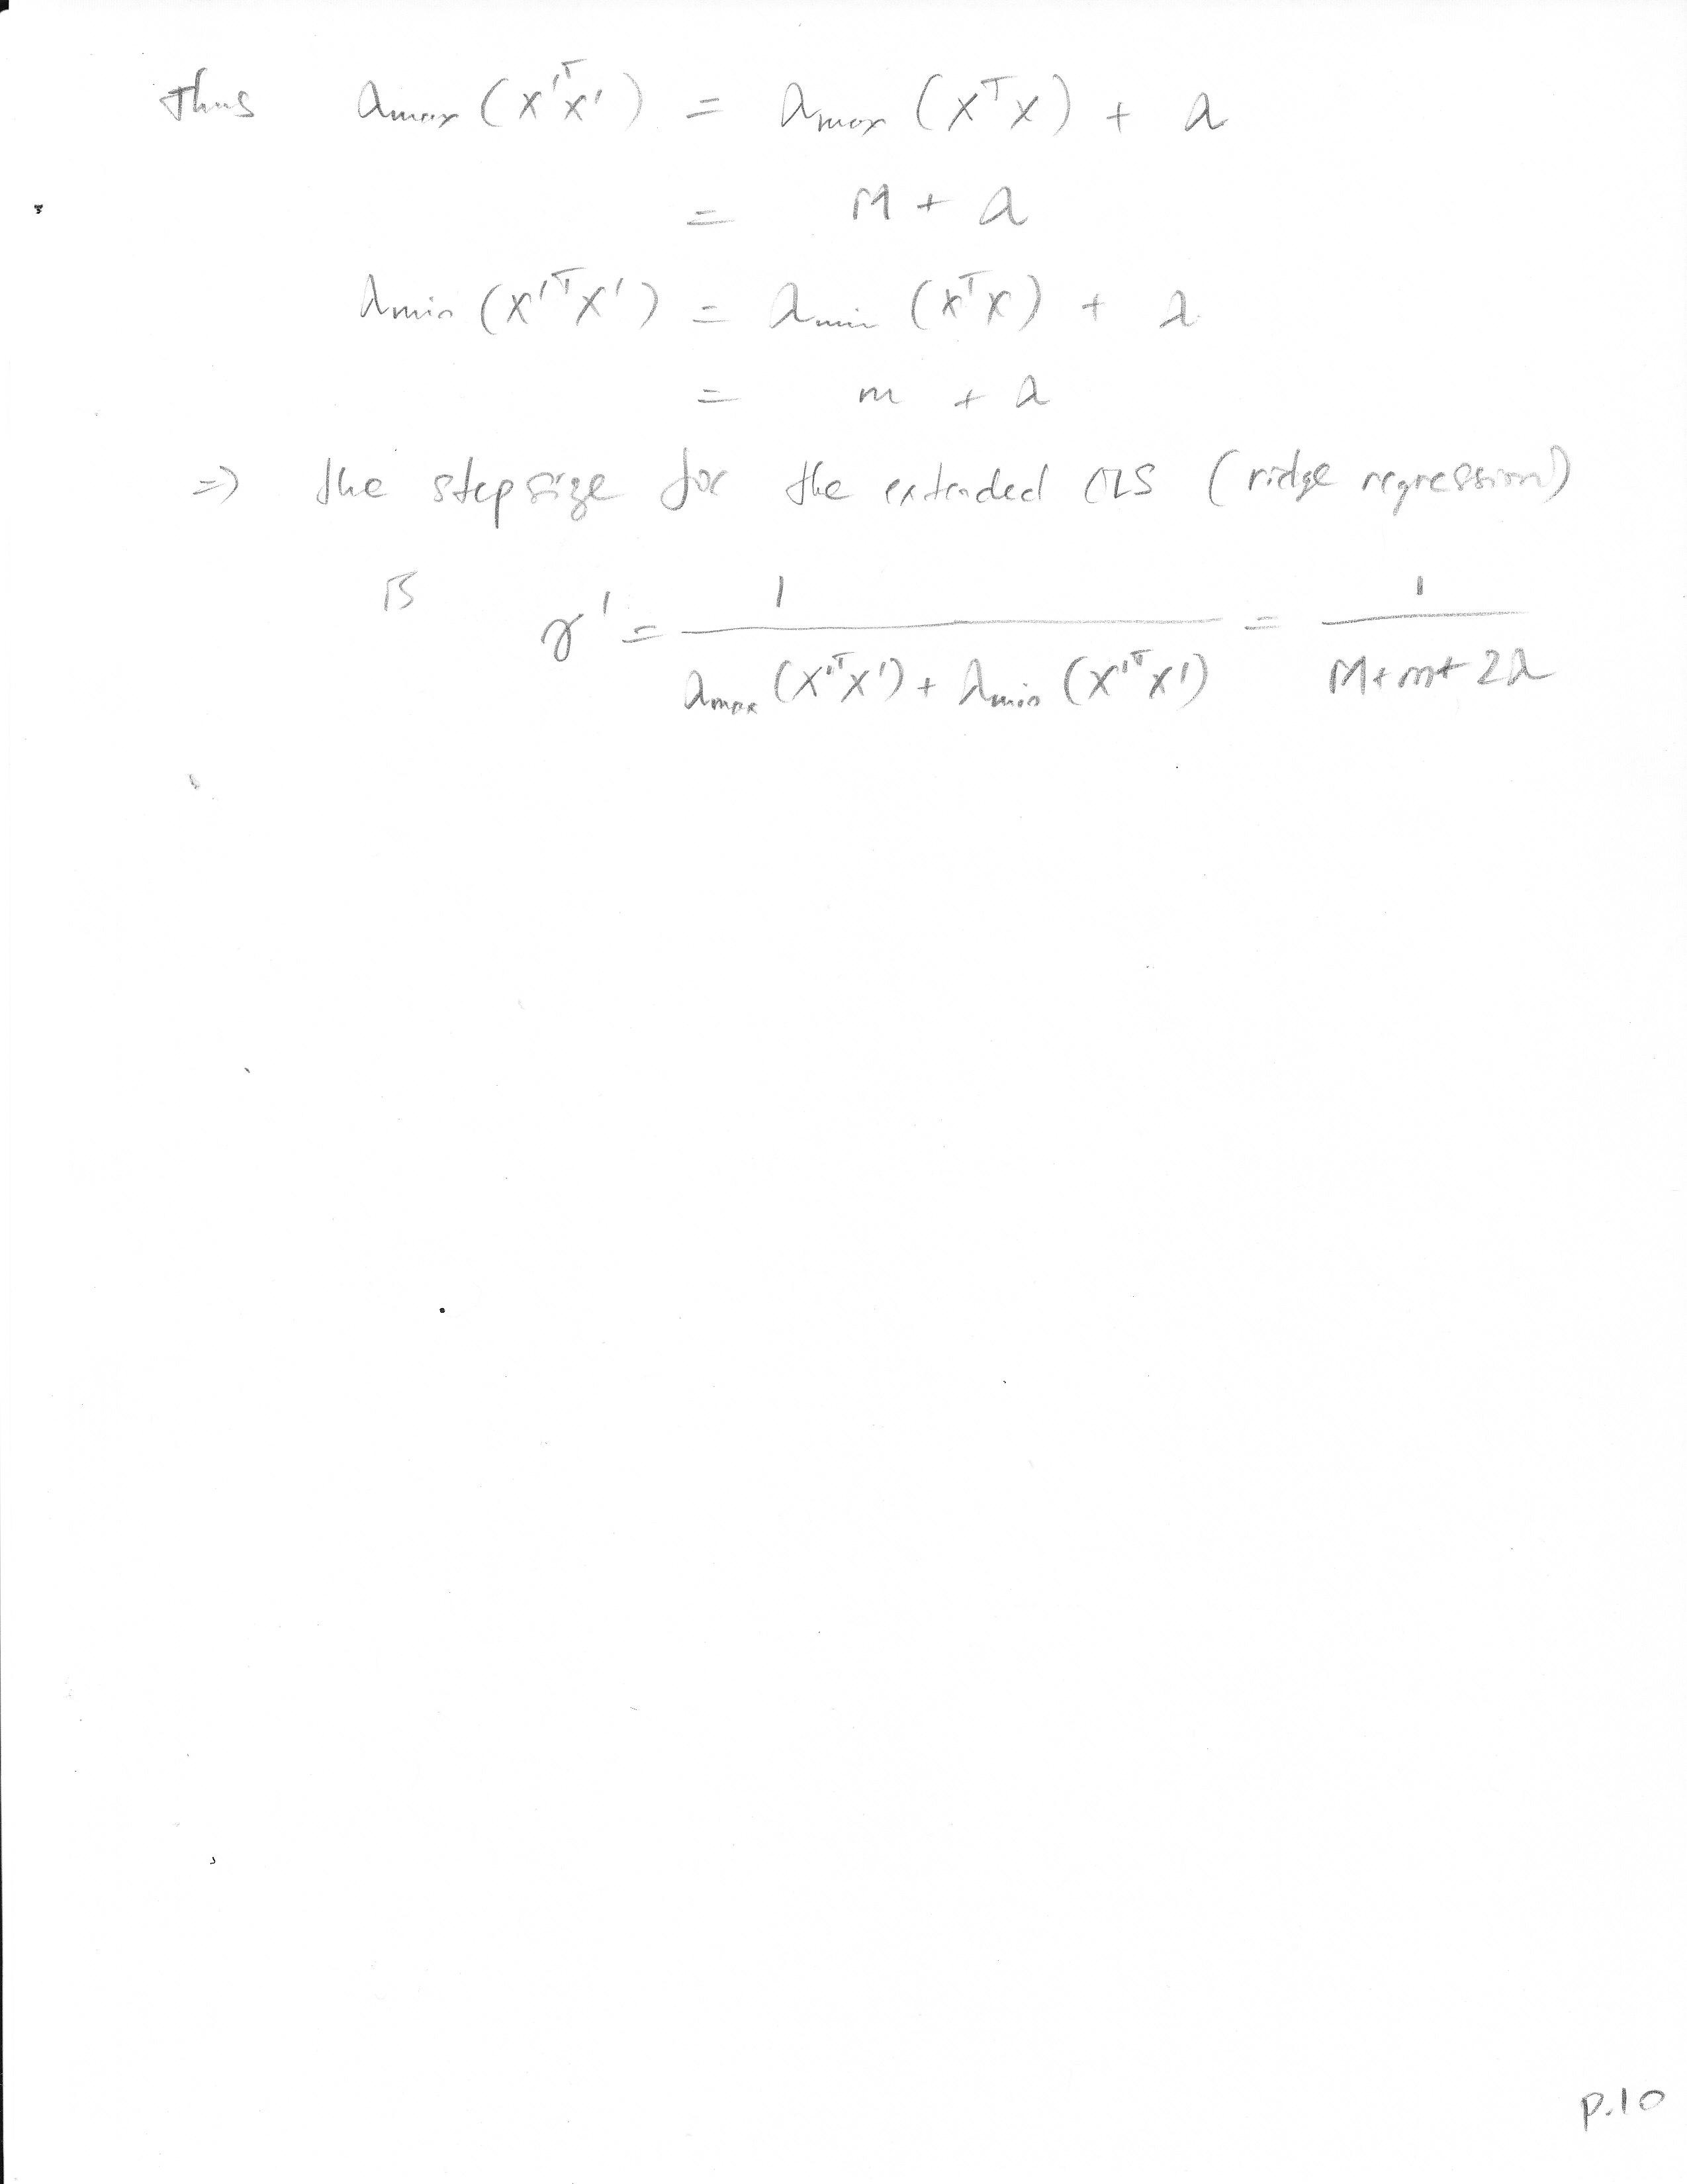 Thus λmax (X'ᵀX') = λmax (XᵀX) + λ
= M + λ
λmin (X'ᵀX') = λmin (XᵀX) + λ
= m + λ
=> the stepsize for the extended OLS (ridge regression)
is γ' = 1 / (λmax (X'ᵀX') + λmin (X'ᵀX')) = 1 / (M+m+2λ)
P.10